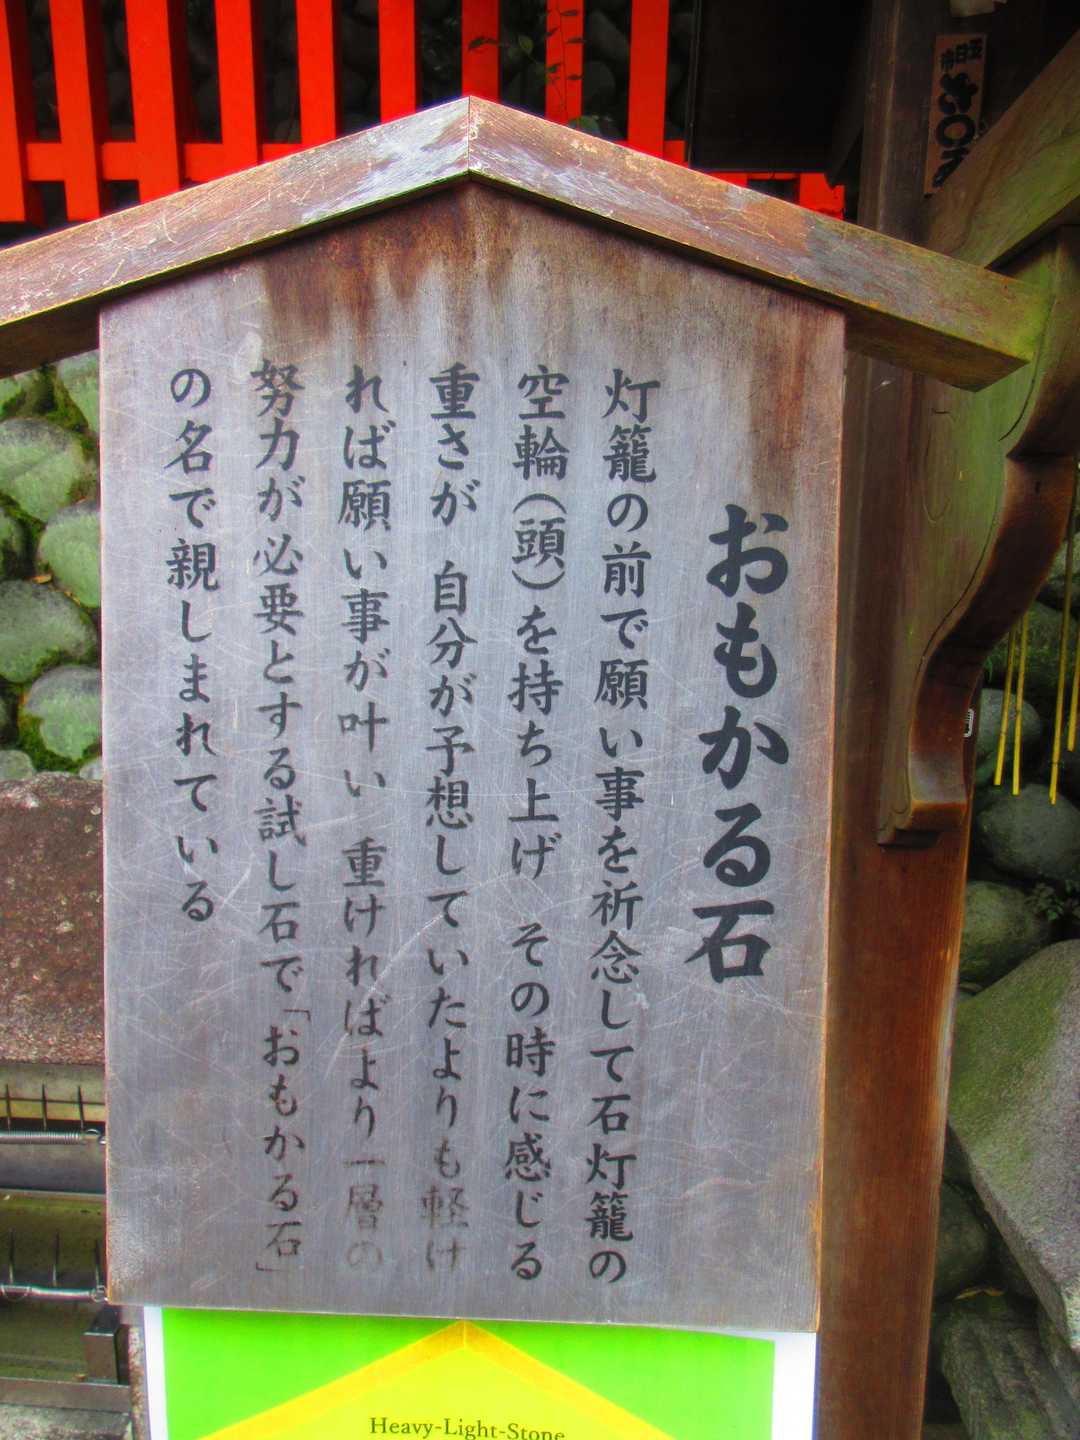 おもかる石
灯籠の前で願い事を祈念して石灯籠の
空輪（頭）を持ち上げ　その時に感じる
重さが　自分が予想していたよりも軽け
れば願い事が叶い　重ければより一層の
努力が必要とする試し石で「おもかる石」
の名で親しまれている
Heavy-Light-Stone